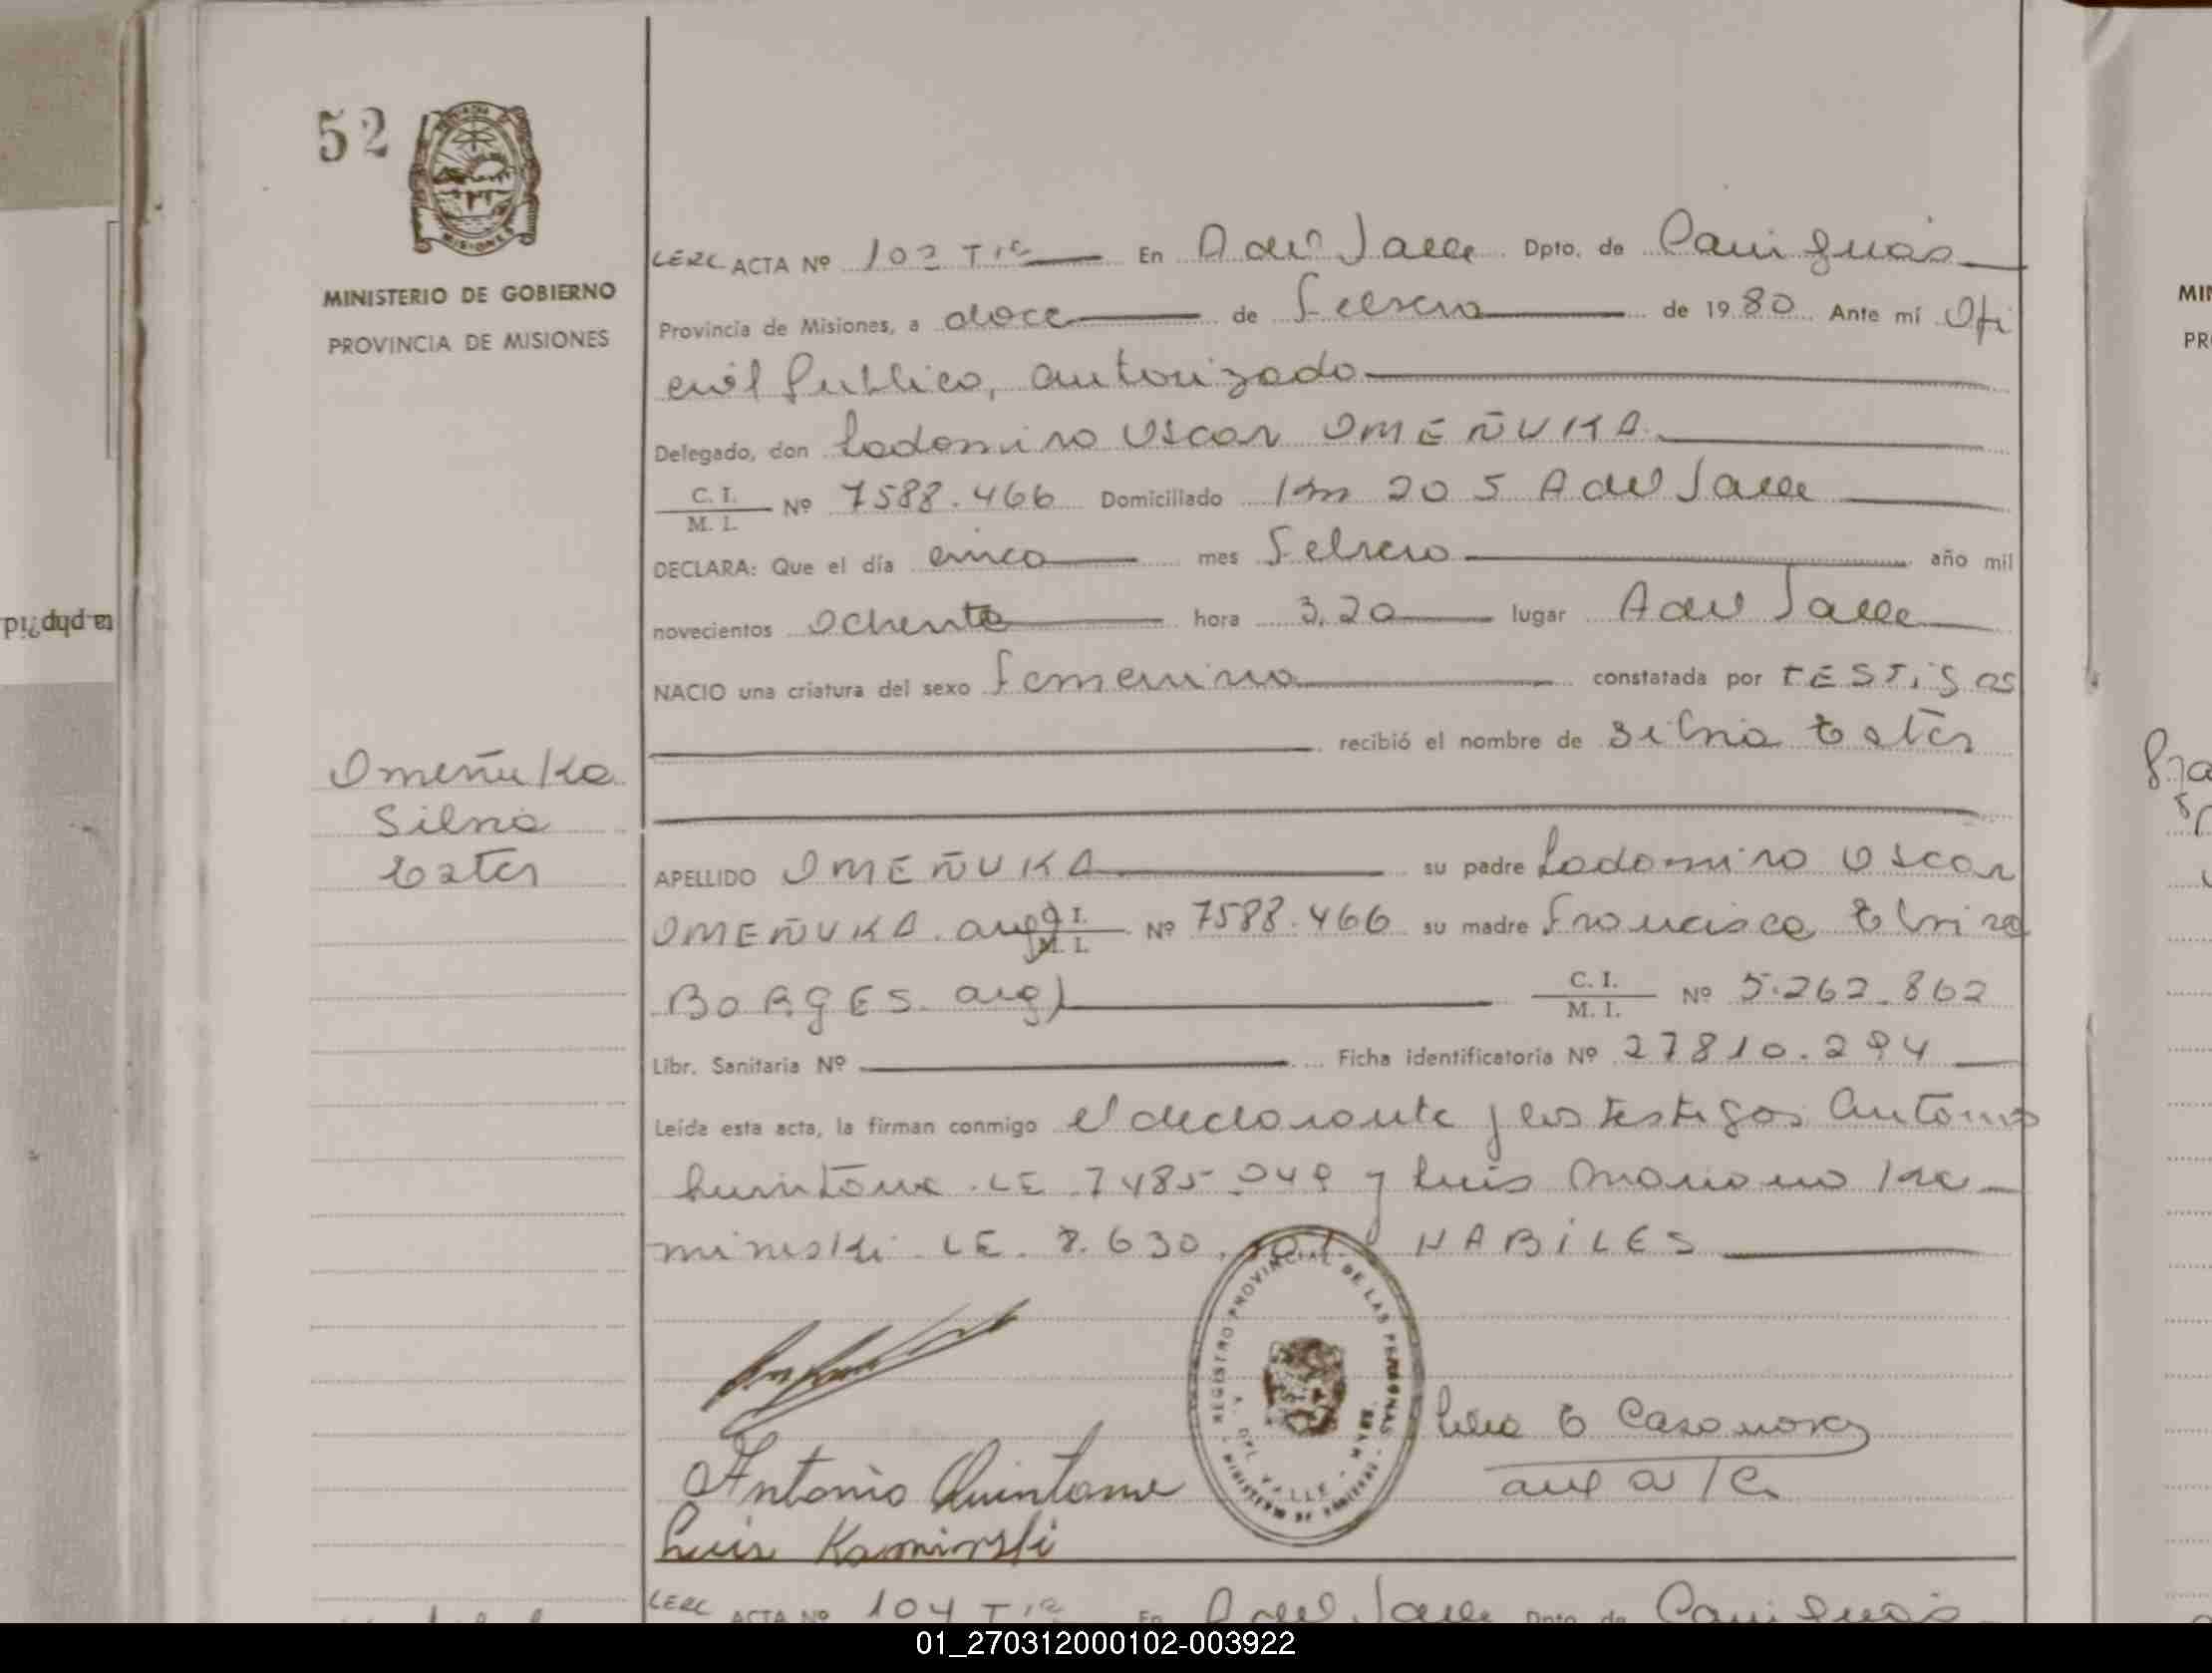 52
MISIONES
MINISTERIO DE GOBIERNO
PROVINCIA DE MISIONES
CERC ACTA Nº 103 En A del Valle Dpto. de Cainguás
Provincia de Misiones, a doce de Febrero de 1980 Ante mí Ofi
cial Publico, autorizado
Delegado, don Ladomiro Oscar OMEÑUKA
C. I. / M. I. Nº 7588.466 Domiciliado Km 205 A del Valle
DECLARA: Que el día cinco mes Febrero año mil
novecientos Ochenta hora 3,20 lugar A del Valle
NACIO una criatura del sexo Femenino constatada por TESTigos
recibió el nombre de Silvia Ester
Omeñuka
Silvia
Ester
APELLIDO OMEÑUKA su padre Ladomiro Oscar
OMEÑUKA. arg) C. I. / M. I. Nº 7588.466 su madre Francisca Elvira
BORgES. arg) C. I. / M. I. Nº 5.262.862
Libr. Sanitaria Nº Ficha identificatoria Nº 27810.294
Leída esta acta, la firman conmigo el declarante y los testigos Antonio
Quintana LE 7485 049 y Luis Mariano Ka
minski LE. 8.630. HABiLES
REGISTRO PROVINCIAL DE LAS PERSONAS
A. DEL VALLE
MINISTERIO DE GOBIERNO
E Casanova
Antonio Quintana
aux a/c
Luis Kaminski
CERC ACTA Nº 104 En A del Valle Dpto. de Cainguás
MIN
PR
ta-php?id
01_270312000102-003922